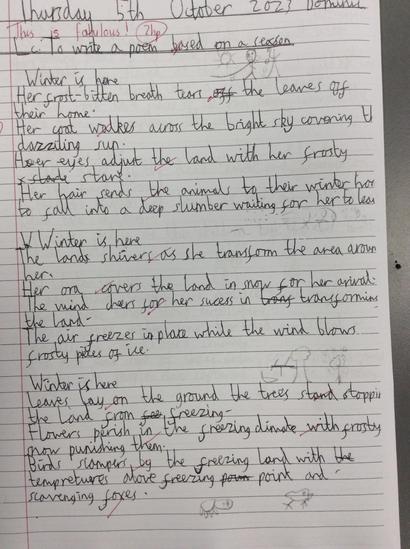 Thursday 5th October 2023 Dominic
This is fabulous! 2hp
L.c. To write a poem based on a season
Winter is here
Her frost-bitten breath tears off the leaves off
their home.
Her coat walkes across the bright sky covering t
dazziling sun.
Her eyes adjust the land with her frosty
stare.
Her hair sends the animals to their winter hom
to fall into a deep slumber waiting for her to lea
Winter is here
The lands shivers as she transform the area aroun
her.
Her ora covers the land in snow for her arival.
The wind cheers for her sucess in transforming
the land.
The air freezes in place while the wind blows
frosty pieces of ice.
Winter is here
Leaves lay on the ground the trees stand stoppin
the land from freezing.
Flowers perish in the freezing climate with frosty
snow punishing them.
Birds scampers by the freezing land with the
tempretures above freezing point and
scavenging foxes.